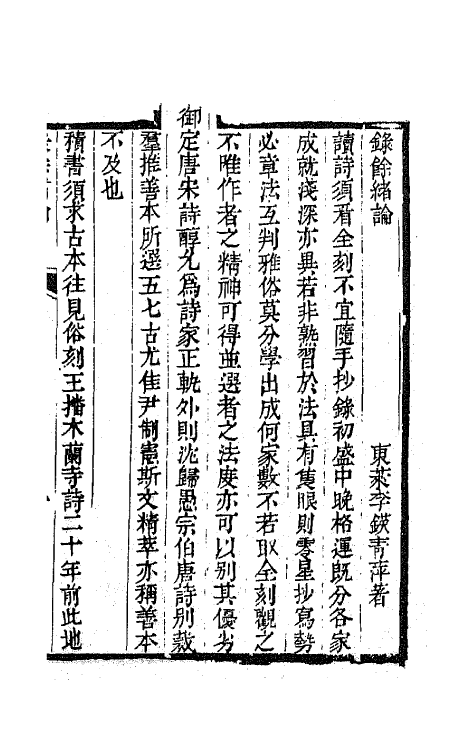 錄餘緒論
東萊李鍈青萍著
讀詩須看全刻不宜隨手抄錄初盛中晚格運既分各家
成就淺深亦異若非熟習於法具有隻眼則零星抄寫勢
必章法互判雅俗莫分學出成何家數不若取全刻觀之
不唯作者之精神可得並選者之法度亦可以別其優劣
御定唐宋詩醇允爲詩家正軌外則沈歸愚宗伯唐詩別裁
羣推善本所選五七古尤佳尹制憲斯文精萃亦稱善本
不及也
積書須求古本往見俗刻王播木蘭寺詩二十年前此地